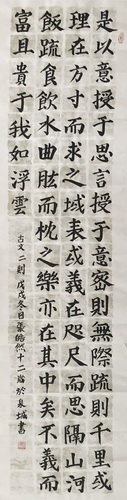 是以意授于思言授于意密則無際疏則千里或
理在方寸而求之域表或義在咫尺而思隔山河
飯疏食飲水曲肱而枕之樂亦在其中矣不義而
富且貴于我如浮雲
古文二則戊戌冬日張皓然十二歲於泉城書